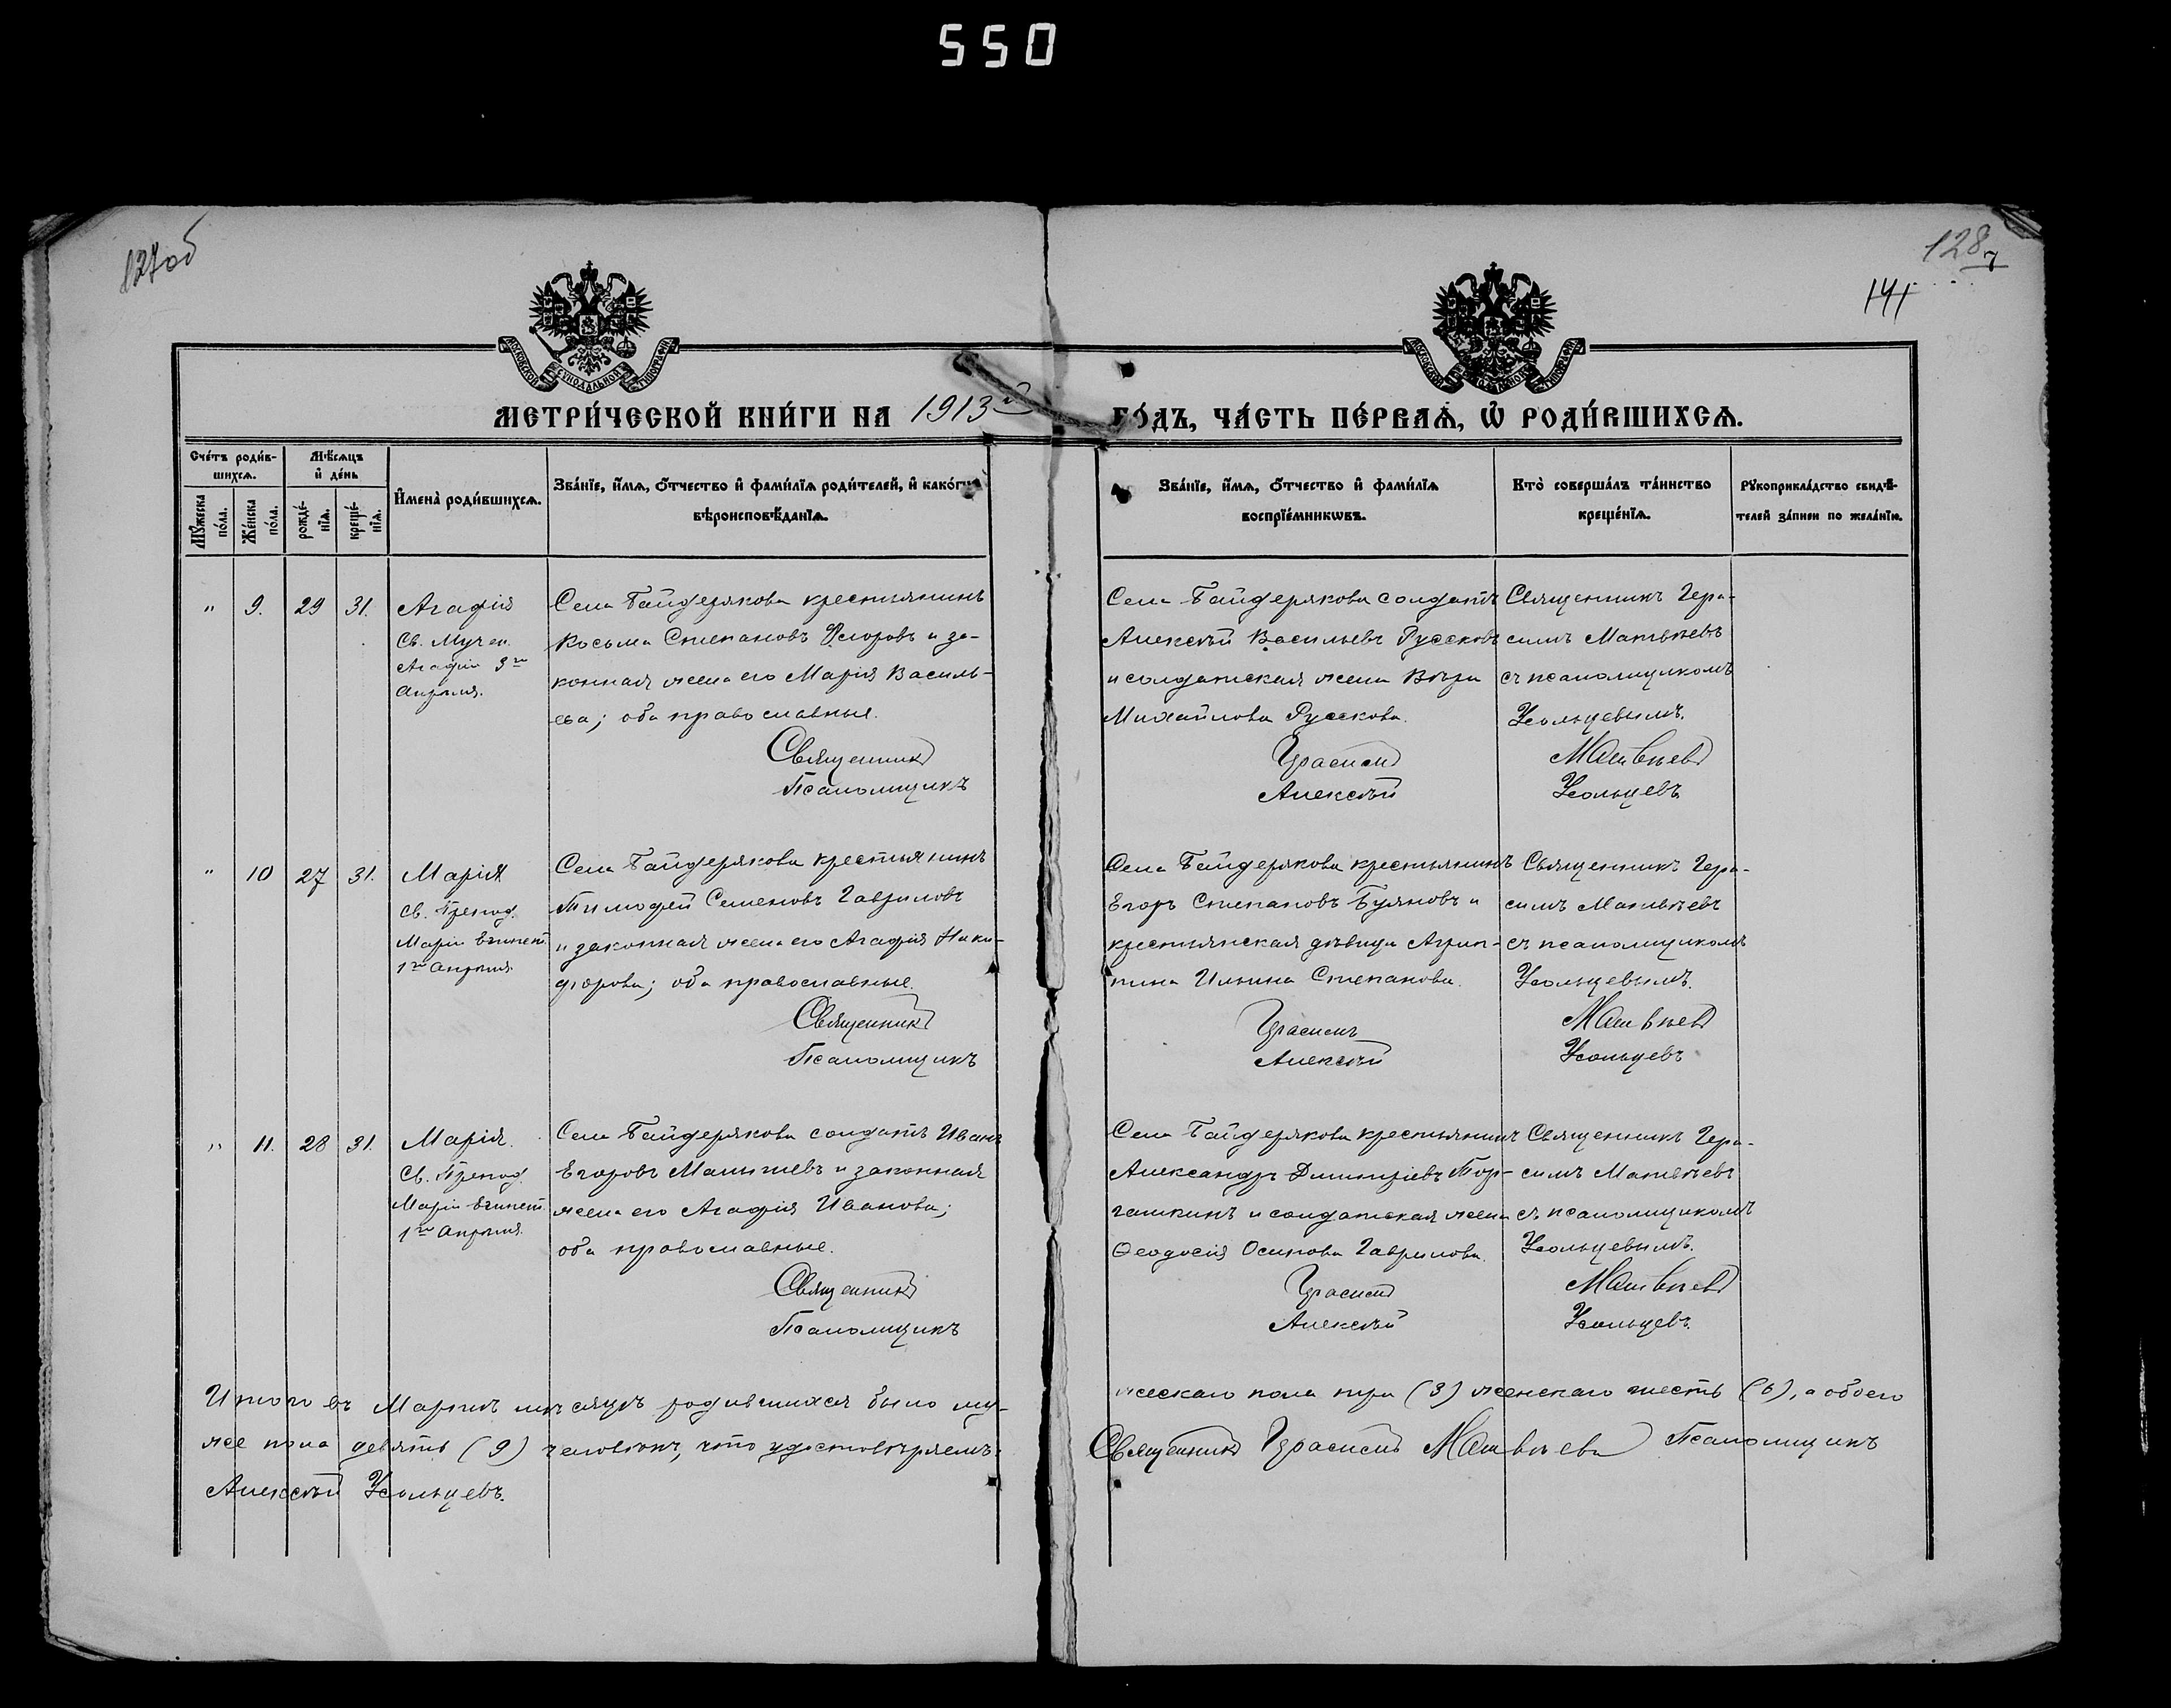 550
127об
128
7
141
МОСКОВСКОЙ СУНОДАЛЬНОЙ ТИПОГРАФІИ
МОСКОВСКОЙ СУНОДАЛЬНОЙ ТИПОГРАФІИ
МЕТРИ́ЧЕСКОЙ КНИ́ГИ НА 1913й ГО́ДЪ, ЧА́СТЬ ПЕ́РВАѦ, Ѡ҆ РОДИ́ВШИХСѦ.
Сче́тъ роди́в-
шихсѧ.
Мꙋ́жеска по́ла.
Же́нска по́ла.
Мѣ́сѧцъ
и҆ де́нь
рожде́-
нїѧ.
креще́-
нїѧ.
И҆мена̀ роди́вшихсѧ.
Зва́нїе, и҆́мѧ, ѻ҆́тчество и҆ фами́лїѧ роди́телей, и҆ како́гѡ
вѣроисповѣ́данїѧ.
Зва́нїе, и҆́мѧ, ѻ҆́тчество и҆ фами́лїѧ
воспрїе́мникѡвъ.
Кто̀ соверша́лъ та́инство
креще́нїѧ.
Рꙋкоприкла́дство свидѣ́-
телей за́писи по жела́нїю.
" 9. 29 31.
Агафія
Св. Мучен.
Агафіи 3го
Апрѣля.
Села Байдерякова крестьянинъ
Косьма Степановъ Флоровъ и за-
конная жена его Марія Василь-
ева; оба православные.
Священникъ
Псаломщикъ
Села Байдерякова солдатъ
Алексѣй Васильевъ Руссковъ
и солдатская жена Вѣра
Михайлова Русскова.
Герасимъ
Алексѣй
Священникъ Гера-
симъ Матвѣевъ
съ псаломщикомъ
Усольцевымъ.
Матвѣевъ
Усольцевъ
" 10 27 31.
Марія
Св. Препод.
Маріи Египет.
1го Апрѣля.
Села Байдерякова крестьянинъ
Тимофей Семеновъ Гавриловъ
и законная жена его Агафія Ники-
форова; оба православные.
Священникъ
Псаломщикъ
Села Байдерякова крестьянинъ
Егоръ Степановъ Буяновъ и
крестьянская дѣвица Агрип-
пина Ильина Степанова.
Герасимъ
Алексѣй
Священникъ Гера-
симъ Матвѣевъ
съ псаломщикомъ
Усольцевымъ.
Матвѣевъ
Усольцевъ
" 11. 28 31.
Марія.
Св. Препод.
Маріи Египет.
1го Апрѣля.
Села Байдерякова солдатъ Иванъ
Егоровъ Малышевъ и законная
жена его Агафія Иванова;
оба православные.
Священникъ
Псаломщикъ
Села Байдерякова крестьянинъ
Александръ Димитріевъ Тор-
гашкинъ и солдатская жена
Ѳеодосія Осипова Гаврилова.
Герасимъ
Алексѣй
Священникъ Гера-
симъ Матвѣевъ
съ псаломщикомъ
Усольцевымъ.
Матвѣевъ
Усольцевъ.
Итого въ Мартѣ мѣсяцѣ родившихся было му- жескаго пола три (3) женскаго шесть (6), а обоего
же пола девять (9) человѣкъ, что удостовѣряемъ: Священникъ Герасимъ Матвѣевъ Псаломщикъ
Алексѣй Усольцевъ.